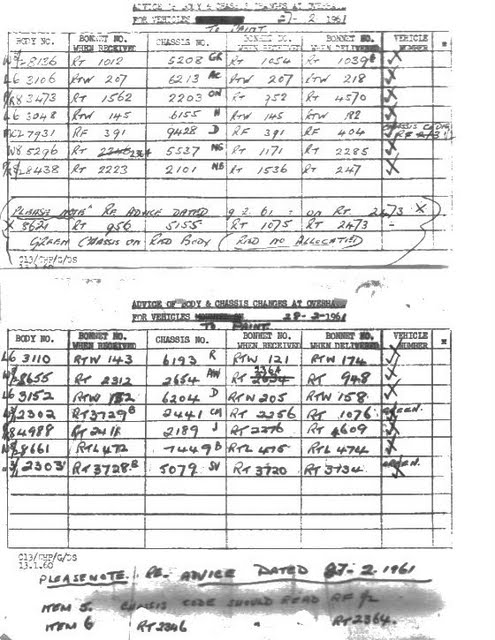 ADVICE OF BODY & CHASSIS CHANGES AT OVERHAUL
FOR VEHICLES 21-2 1961
To PAINT
BODY NO. BONNET NO. WHEN RECEIVED CHASSIS NO. BONNET NO. WHEN RECEIVED BONNET NO. WHEN DELIVERED VEHICLE NUMBER
8136 RT 1012 5208 GR RT 1054 RT 1039
L6 3106 RTW 207 6213 AC RTW 207 RTW 218
R8 3473 RT 1562 2203 ON RT 752 RT 4570
L6 3048 RTW 145 6155 H RTW 145 RTW 182
7931 RF 391 9428 D RF 391 RF 404 CHASSIS CODE
W8 5296 RT 2364 5537 NG RT 1171 RT 2285
8438 RT 2223 2101 NB RT 1536 RT 247
PLEASE NOTE RE ADVICE DATED 9.2.61 - on RT 2473 X
X 8621 RT 956 5155 RT 1075 RT 2473 -
GREEN CHASSIS ON RED BODY (RED NO ALLOCATED)
C13/CHP/G/DS
13.1.60
ADVICE OF BODY & CHASSIS CHANGES AT OVERHAUL
FOR VEHICLES 28-2-1961
To PAINT
BODY NO. BONNET NO. WHEN RECEIVED CHASSIS NO. BONNET NO. WHEN RECEIVED BONNET NO. WHEN DELIVERED VEHICLE NUMBER
L6 3110 RTW 143 6193 R RTW 121 RTW 174
8655 RT 2312 2654 AW 2364 RT 948
L6 3152 RTW 182 6204 D RTW 205 RTW 158
2302 RT 3729 B 2441 CM RT 2256 RT 1076 GREEN.
4988 RT 2411 2189 J RT 2276 RT 4609
8661 RTL 472 7449 B RTL 475 RTL 474
2303 RT 3728 B 5079 SV RT 3720 RT 3134 GREEN.
C13/CHP/G/DS
13.1.60
PLEASE NOTE. RE. ADVICE DATED 27-2 1961
ITEM 5. CHASSIS CODE SHOULD READ RF
ITEM 6 RT 2346 " RT 2364.